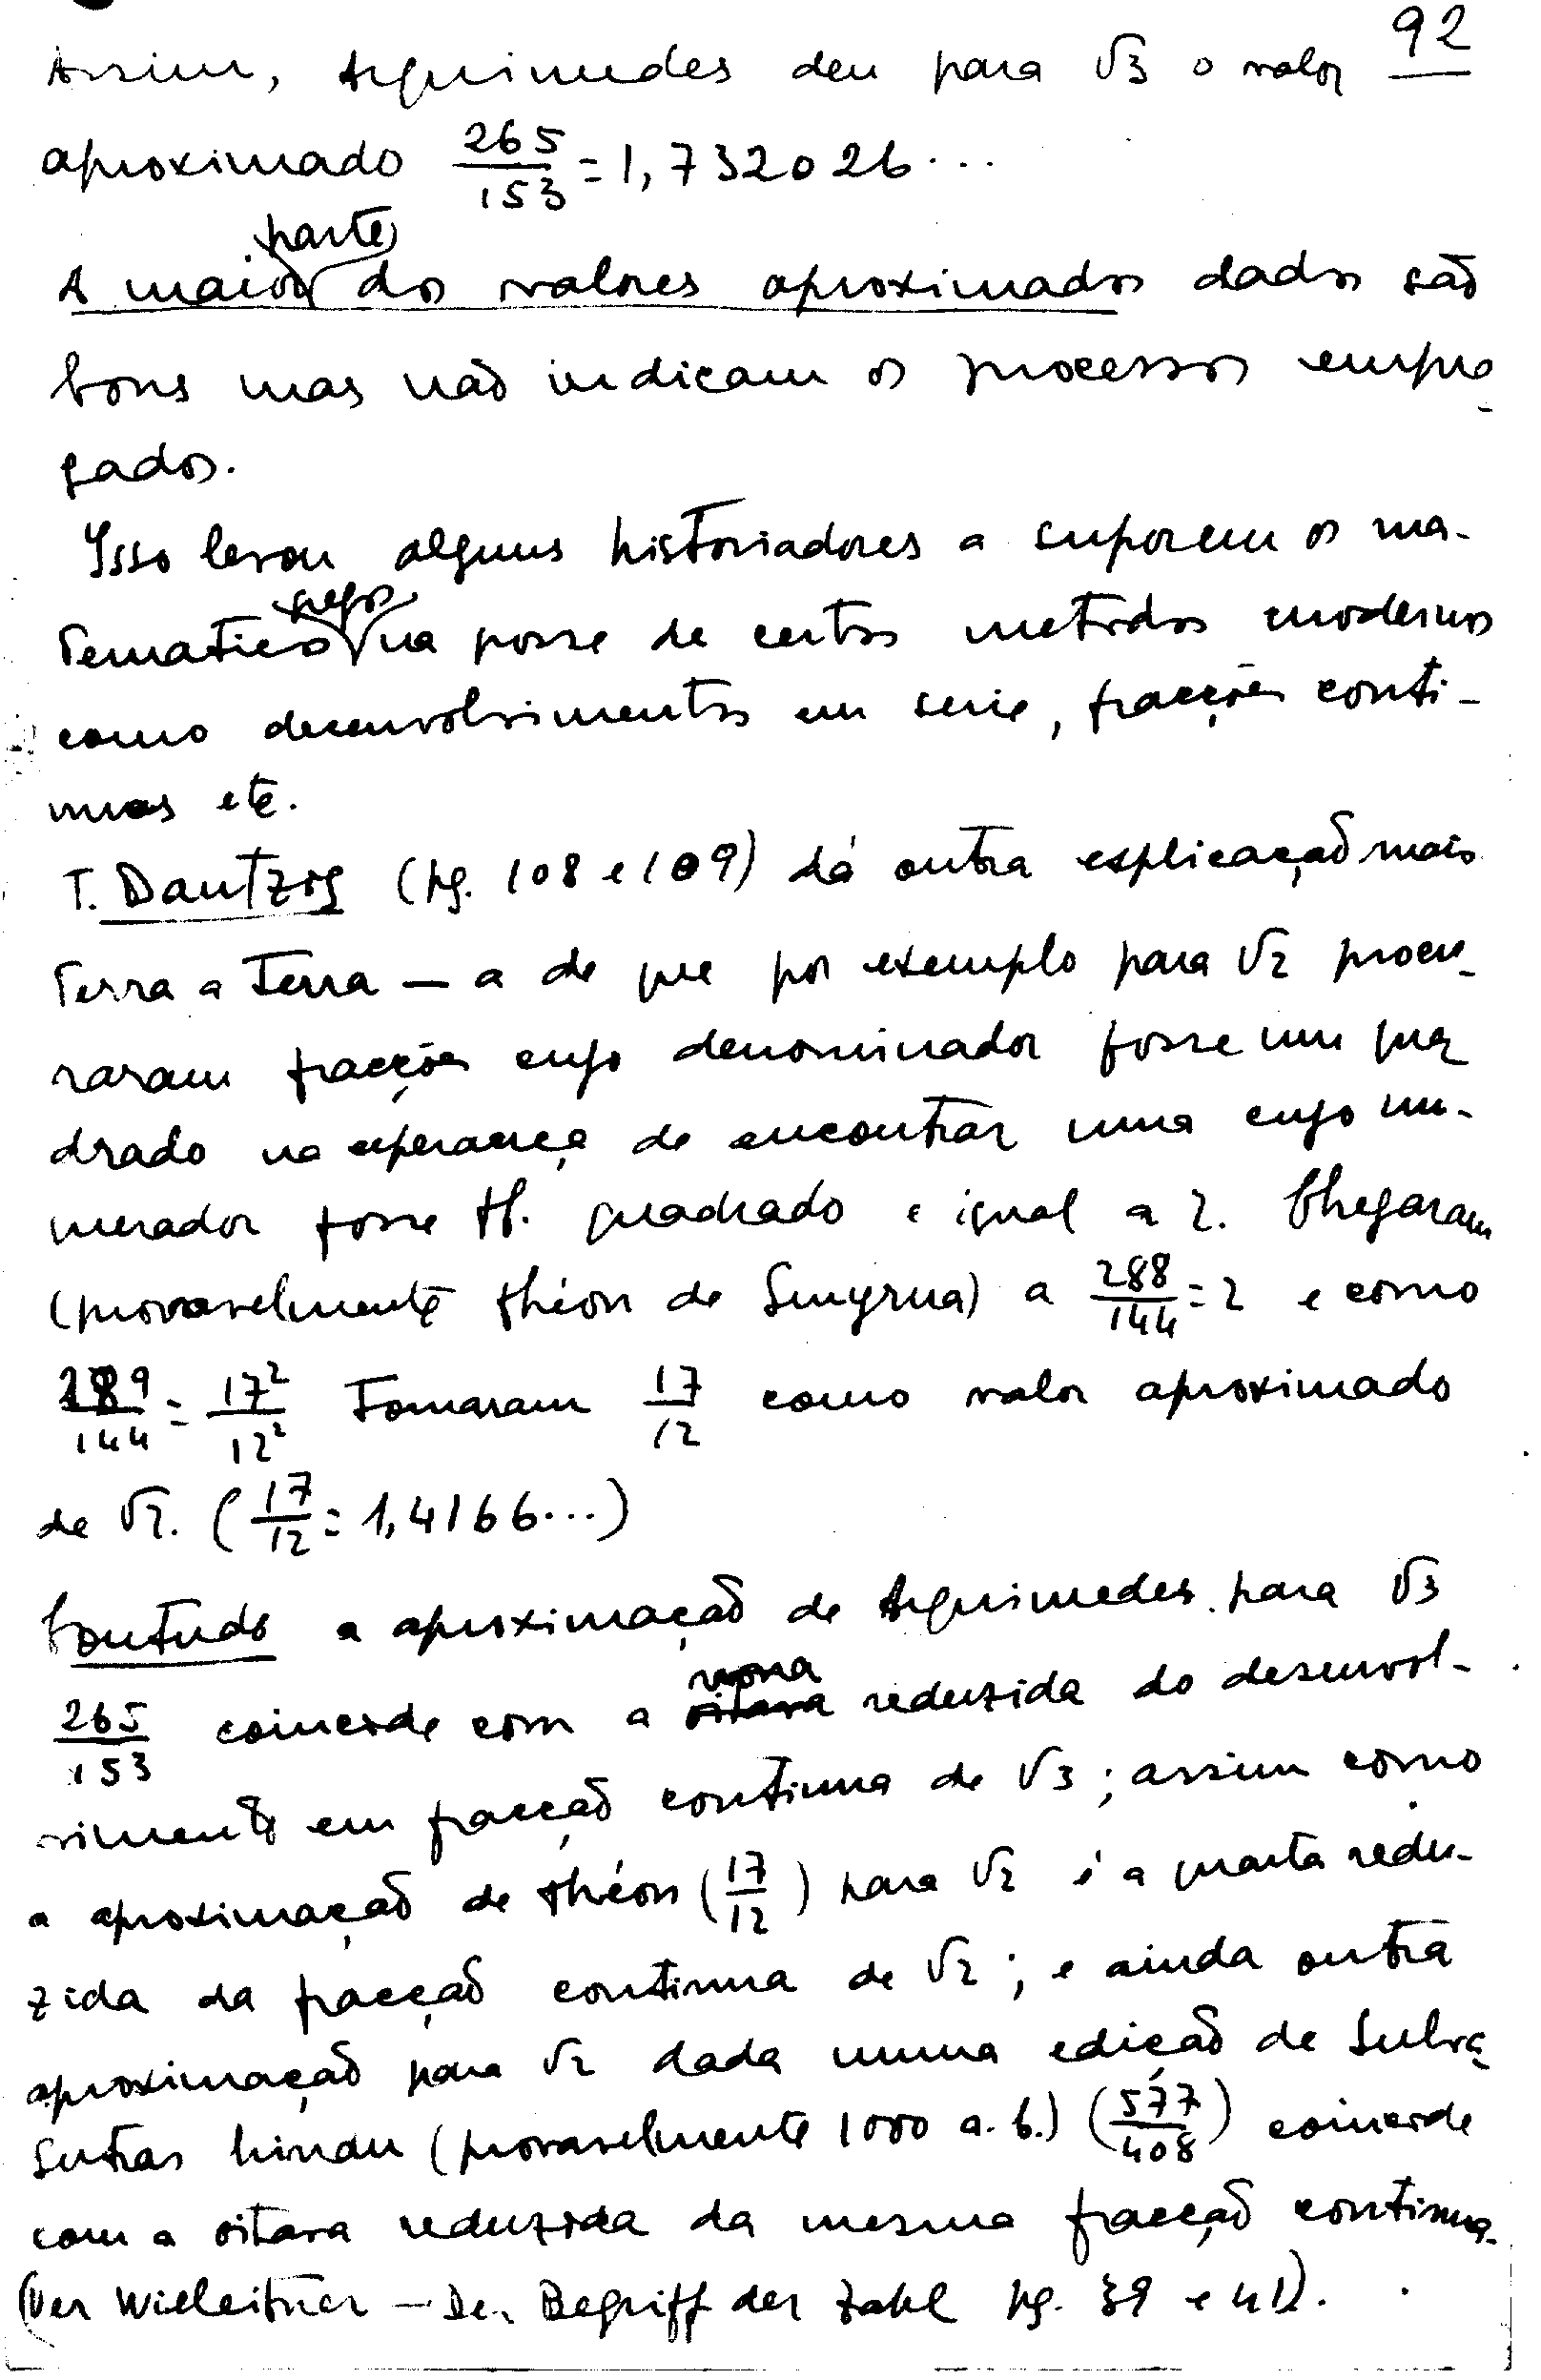 92
Assim, Arquimedes deu para √3 o valor
aproximado 265/153 = 1,732026...
A maior parte dos valores aproximados dados são
bons mas não indicam os processos empre
gados.
Isso levou alguns historiadores a suporem os ma-
tematicos gregos na posse de certos metodos modernos
como desenvolvimentos em serie, fracções conti-
nuas etc.
T. Dantzig (pg. 108 e 109) dá outra explicação mais
terra a terra — a de que por exemplo para √2 procu-
raram fracções cujo denominador fosse um qua
drado na esperança de encontrar uma cujo nu-
merador fosse tb. quadrado e igual a 2. Chegaram
(provavelmente Théon de Smyrna) a 288/144 = 2 e como
289/144 = 17²/12² tomaram 17/12 como valor aproximado
de √2. (17/12 = 1,4166...)
Contudo a aproximação de Arquimedes para √3
265/153 coincide com a nona reduzida do desenvol-
vimento em fracção continua de √3; assim como
a aproximação de Théon (17/12) para √2 é a quarta redu-
zida da fracção continua de √2; e ainda outra
aproximação para √2 dada numa edição de Sulva
Sutras hindu (provavelmente 1000 a. C.) (577/408) coincide
com a oitava reduzida da mesma fracção continua.
(Ver Wieleitner — Der Begriff der Zahl pg. 39 e 41).